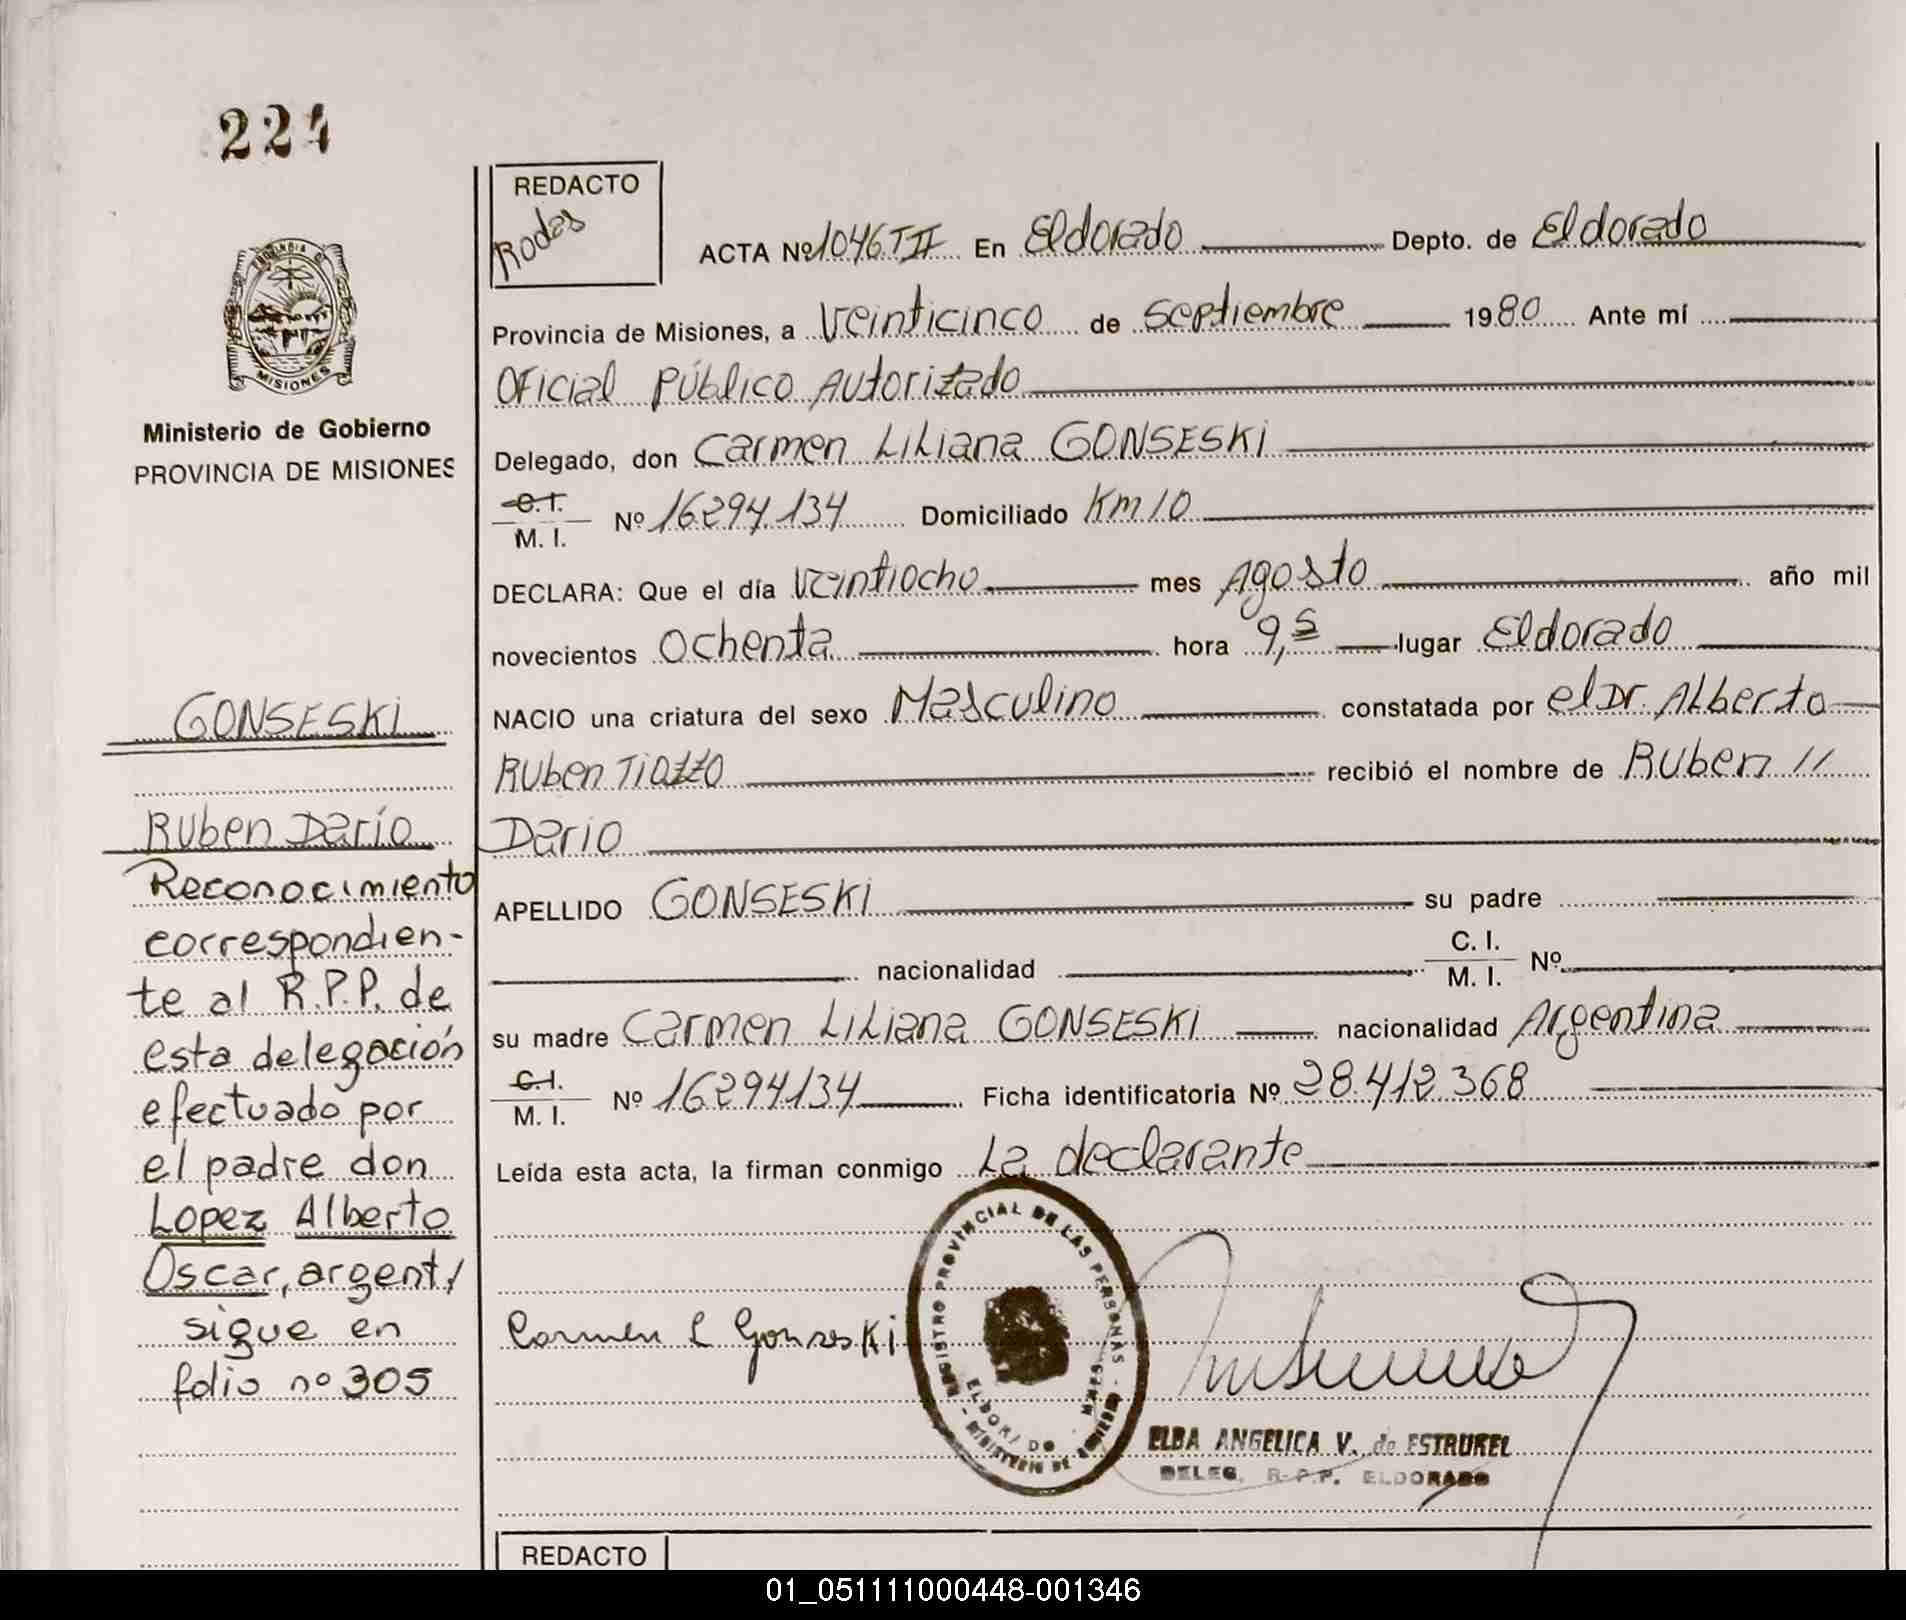 224
REDACTO
Rodas
ACTA Nº 1046 T II En Eldorado Depto. de Eldorado
Provincia de Misiones, a Veinticinco de septiembre 1980 Ante mí
Oficial Público Autorizado
Delegado, don Carmen Liliana GONSESKI
C. I.
M. I. Nº 16294.134 Domiciliado Km 10
DECLARA: Que el día Veintiocho mes Agosto año mil
novecientos Ochenta hora 9,5 lugar Eldorado
NACIO una criatura del sexo Masculino constatada por el Dr. Alberto
Ruben Tiozzo recibió el nombre de Ruben //
Dario
APELLIDO GONSESKI su padre
nacionalidad C. I. M. I. Nº
su madre Carmen Liliana GONSESKI nacionalidad Argentina
C. I.
M. I. Nº 16294134 Ficha identificatoria Nº 28.412.368
Leída esta acta, la firman conmigo La declarante
Carmen L Gonseski
REGISTRO PROVINCIAL DE LAS PERSONAS
MINISTERIO DE
ELDORADO
ELBA ANGELICA V. de ESTRUBEL
DELEG. R.P.P. ELDORADO
REDACTO
PROVINCIA D
MISIONES
Ministerio de Gobierno
PROVINCIA DE MISIONES
GONSESKI
Ruben Darío
Reconocimiento
correspondien-
te al R.P.P. de
esta delegación
efectuado por
el padre don
Lopez Alberto
Oscar, argent/
sigue en
folio nº 305
01_051111000448-001346